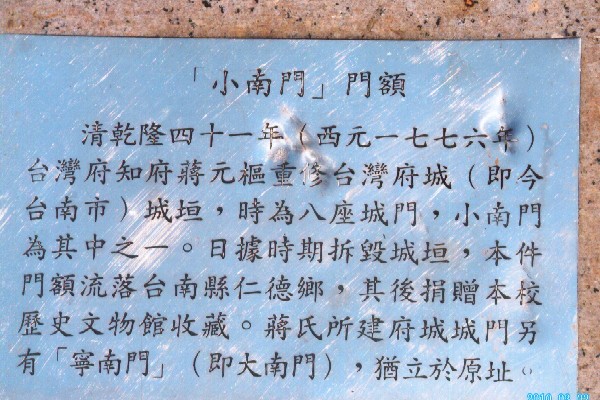 「小南門」門額
清乾隆四十一年（西元一七七六年）
台灣府知府蔣元樞重修台灣府城（即今
台南市）城垣，時為八座城門，小南門
為其中之一。日據時期拆毀城垣，本件
門額流落台南縣仁德鄉，其後捐贈本校
歷史文物館收藏。蔣氏所建府城城門另
有「寧南門」（即大南門），猶立於原址。